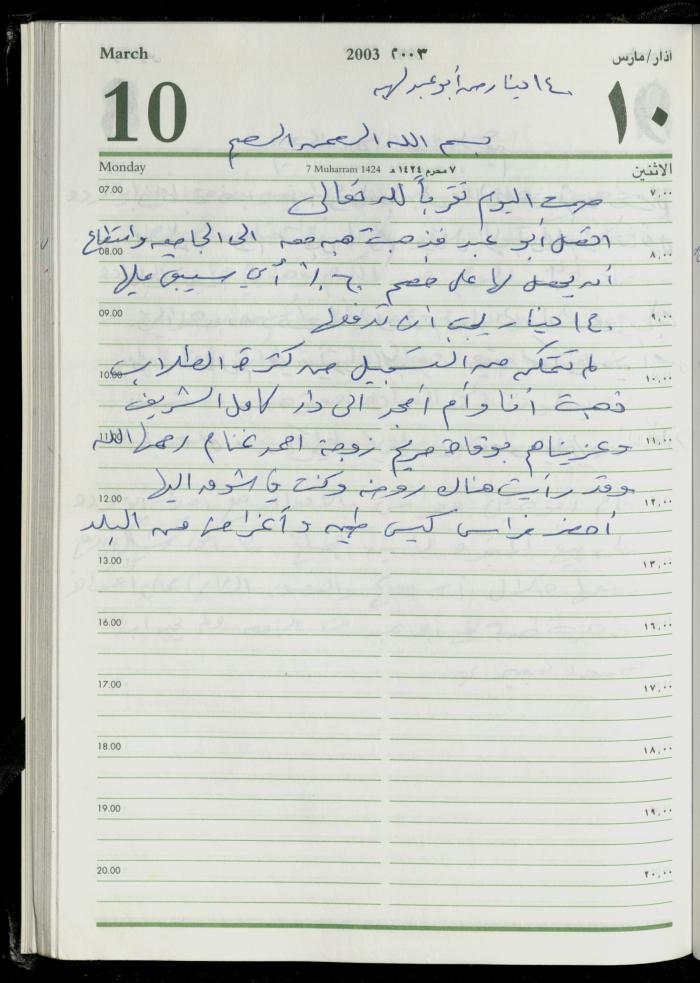 March 2003 ٢٠٠٣ اذار/مارس
١٤٠ دينار من أبو عبد لهبه
10 ١٠
بسم الله الرحمن الرحيم
Monday 7 Muharram 1424 ٧ محرم ١٤٢٤ هـ الاثنين
07.00 صمت اليوم تقرباً لله تعالى ٧,٠٠
اتصل أبو عبد فذهبت هبه معه الى الجامعه واستطاع
08.00 ٨,٠٠
أن يحصل لها على خصم أي سيبقى عليها
09.00 ١٤٠ دينار يجب أن تدفعها ٩,٠٠
لم تتمكن من التسجيل من كثرة الطلاب
10.00 ١٠,٠٠
ذهبت أنا وأم أمجد الى دار كامل الشريف
11.00 وعزيناهم بوفاة مريم زوجة احمد غنام رحمها الله ١١,٠٠
وقد رأيت هناك روضه وكنت بشوق اليها
12.00 ١٢,٠٠
أحضر فراس كيس طحين وأغراض من البلد
13.00 ١٣,٠٠
16.00 ١٦,٠٠
17.00 ١٧,٠٠
18.00 ١٨,٠٠
19.00 ١٩,٠٠
20.00 ٢٠,٠٠